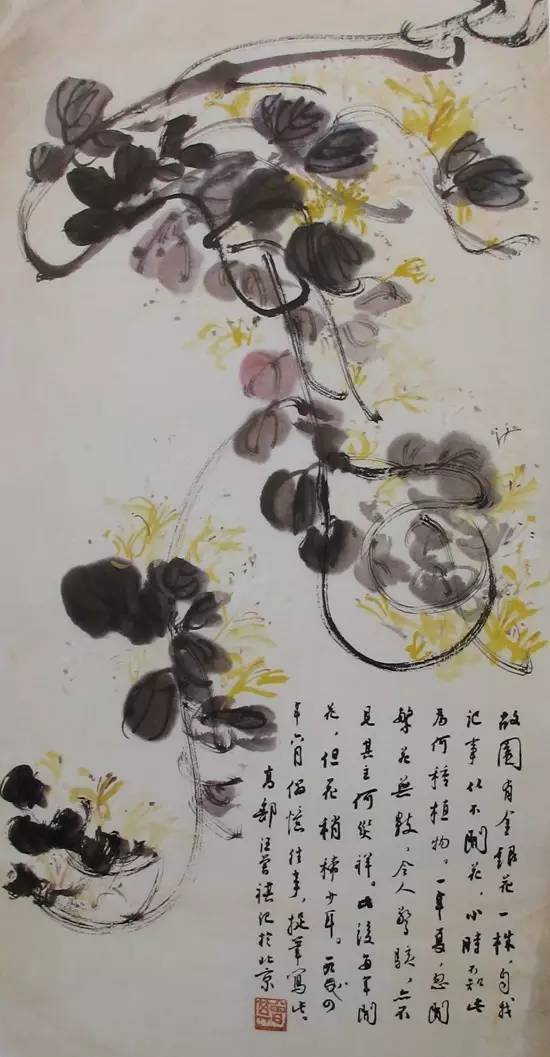 故園有金銀花一株，自我
记事从不開花，小時不知此
為何種植物。一年夏，忽開
繁花無數，令人驚駭，亦不
見其主何災祥。此後每年開
花，但花稍稀少耳。一九八四
年六月偶憶往事，捉筆寫此。
高郵汪曾祺记於北京